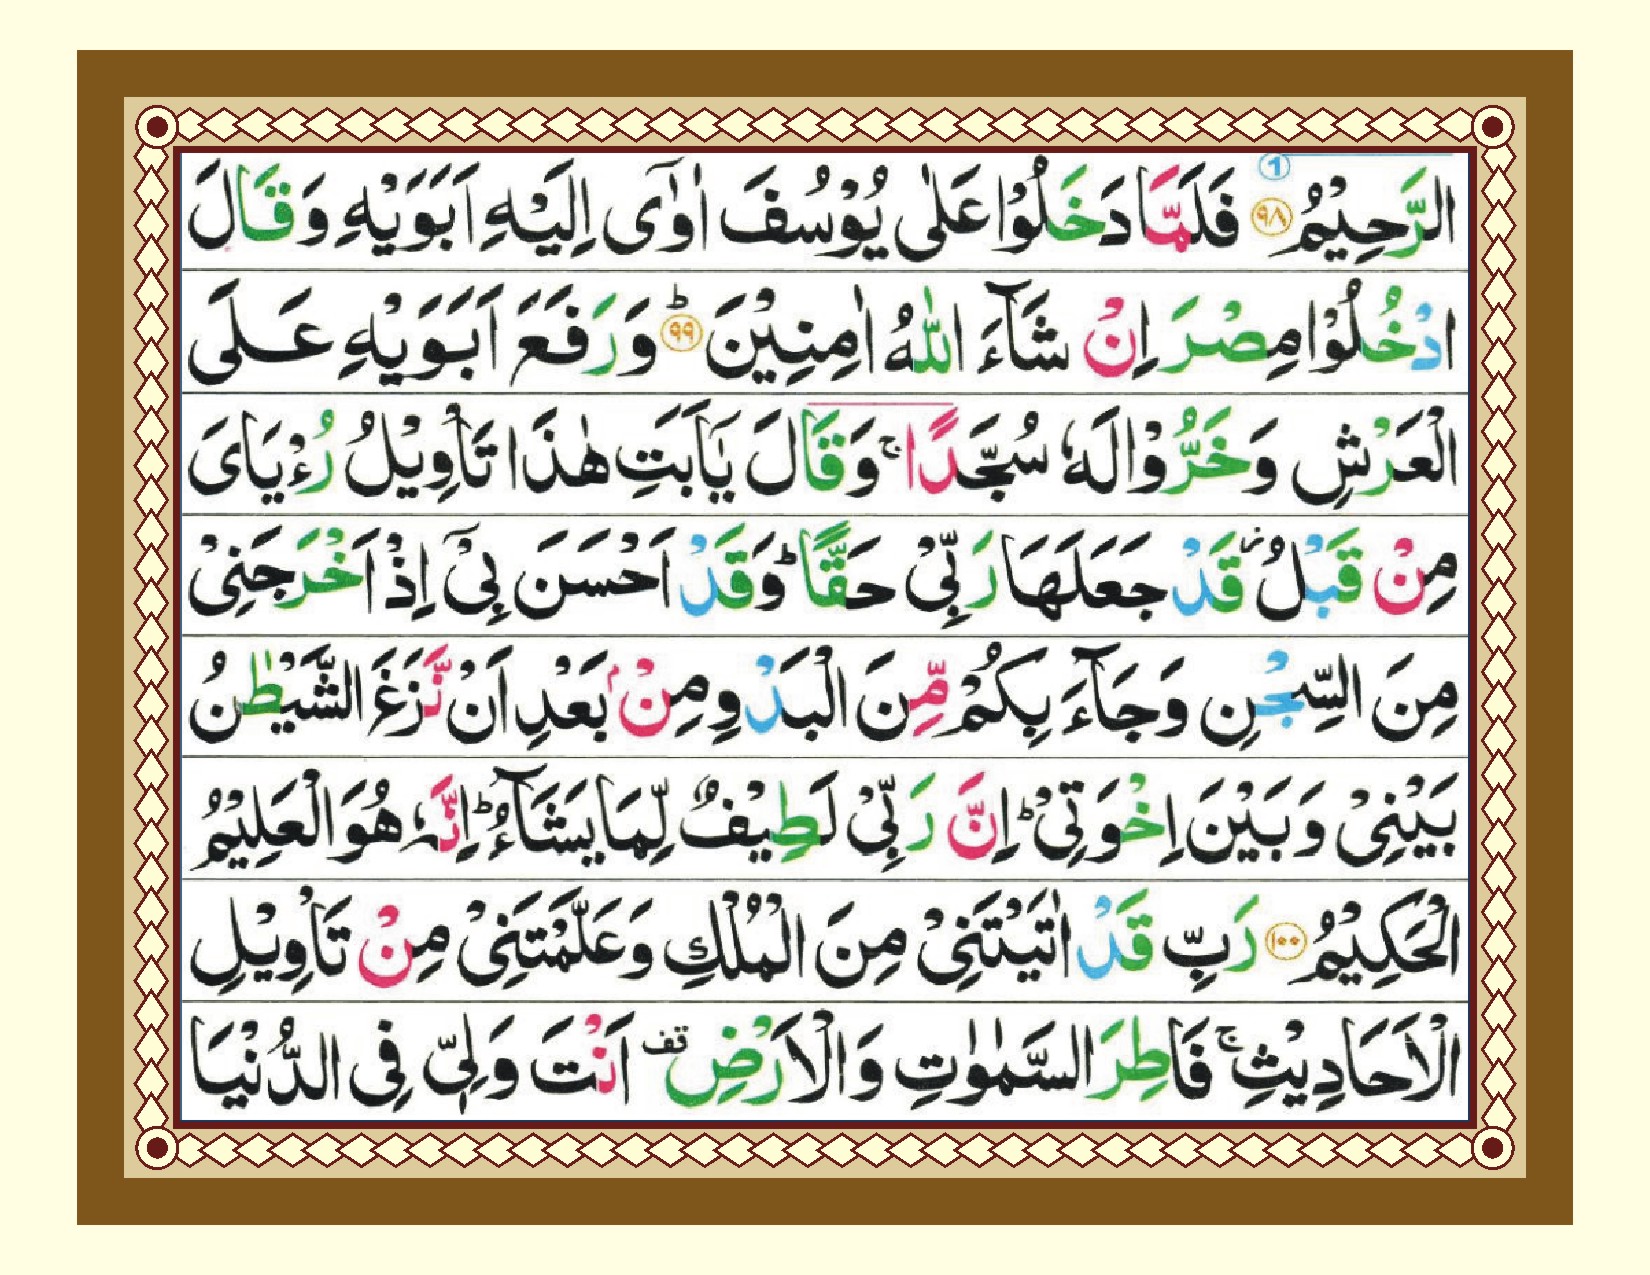 الرَّحِيْمُ ﴿۹۸﴾ فَلَمَّا دَخَلُوْا عَلٰى يُوْسُفَ اٰوٰٓى اِلَيْهِ اَبَوَيْهِ وَقَالَ
ادْخُلُوْا مِصْرَ اِنْ شَآءَ اللّٰهُ اٰمِنِيْنَ ؕ﴿۹۹﴾ وَرَفَعَ اَبَوَيْهِ عَلَى
الْعَرْشِ وَخَرُّوْا لَهٗ سُجَّدًا ۚ وَقَالَ يٰۤاَبَتِ هٰذَا تَاْوِيْلُ رُءْيَاىَ
مِنْ قَبْلُ ؗ قَدْ جَعَلَهَا رَبِّىْ حَقًّا ؕ وَقَدْ اَحْسَنَ بِىْۤ اِذْ اَخْرَجَنِىْ
مِنَ السِّجْنِ وَجَآءَ بِكُمْ مِّنَ الْبَدْوِ مِنْۢ بَعْدِ اَنْ نَّزَغَ الشَّيْطٰنُ
بَيْنِىْ وَبَيْنَ اِخْوَتِىْ ؕ اِنَّ رَبِّىْ لَطِيْفٌ لِّمَا يَشَآءُ ؕ اِنَّهٗ هُوَ الْعَلِيْمُ
الْحَكِيْمُ ﴿۱۰۰﴾ رَبِّ قَدْ اٰتَيْتَنِىْ مِنَ الْمُلْكِ وَعَلَّمْتَنِىْ مِنْ تَاْوِيْلِ
الْاَحَادِيْثِ ۚ فَاطِرَ السَّمٰوٰتِ وَالْاَرْضِ قف اَنْتَ وَلِىّٖ فِى الدُّنْيَا